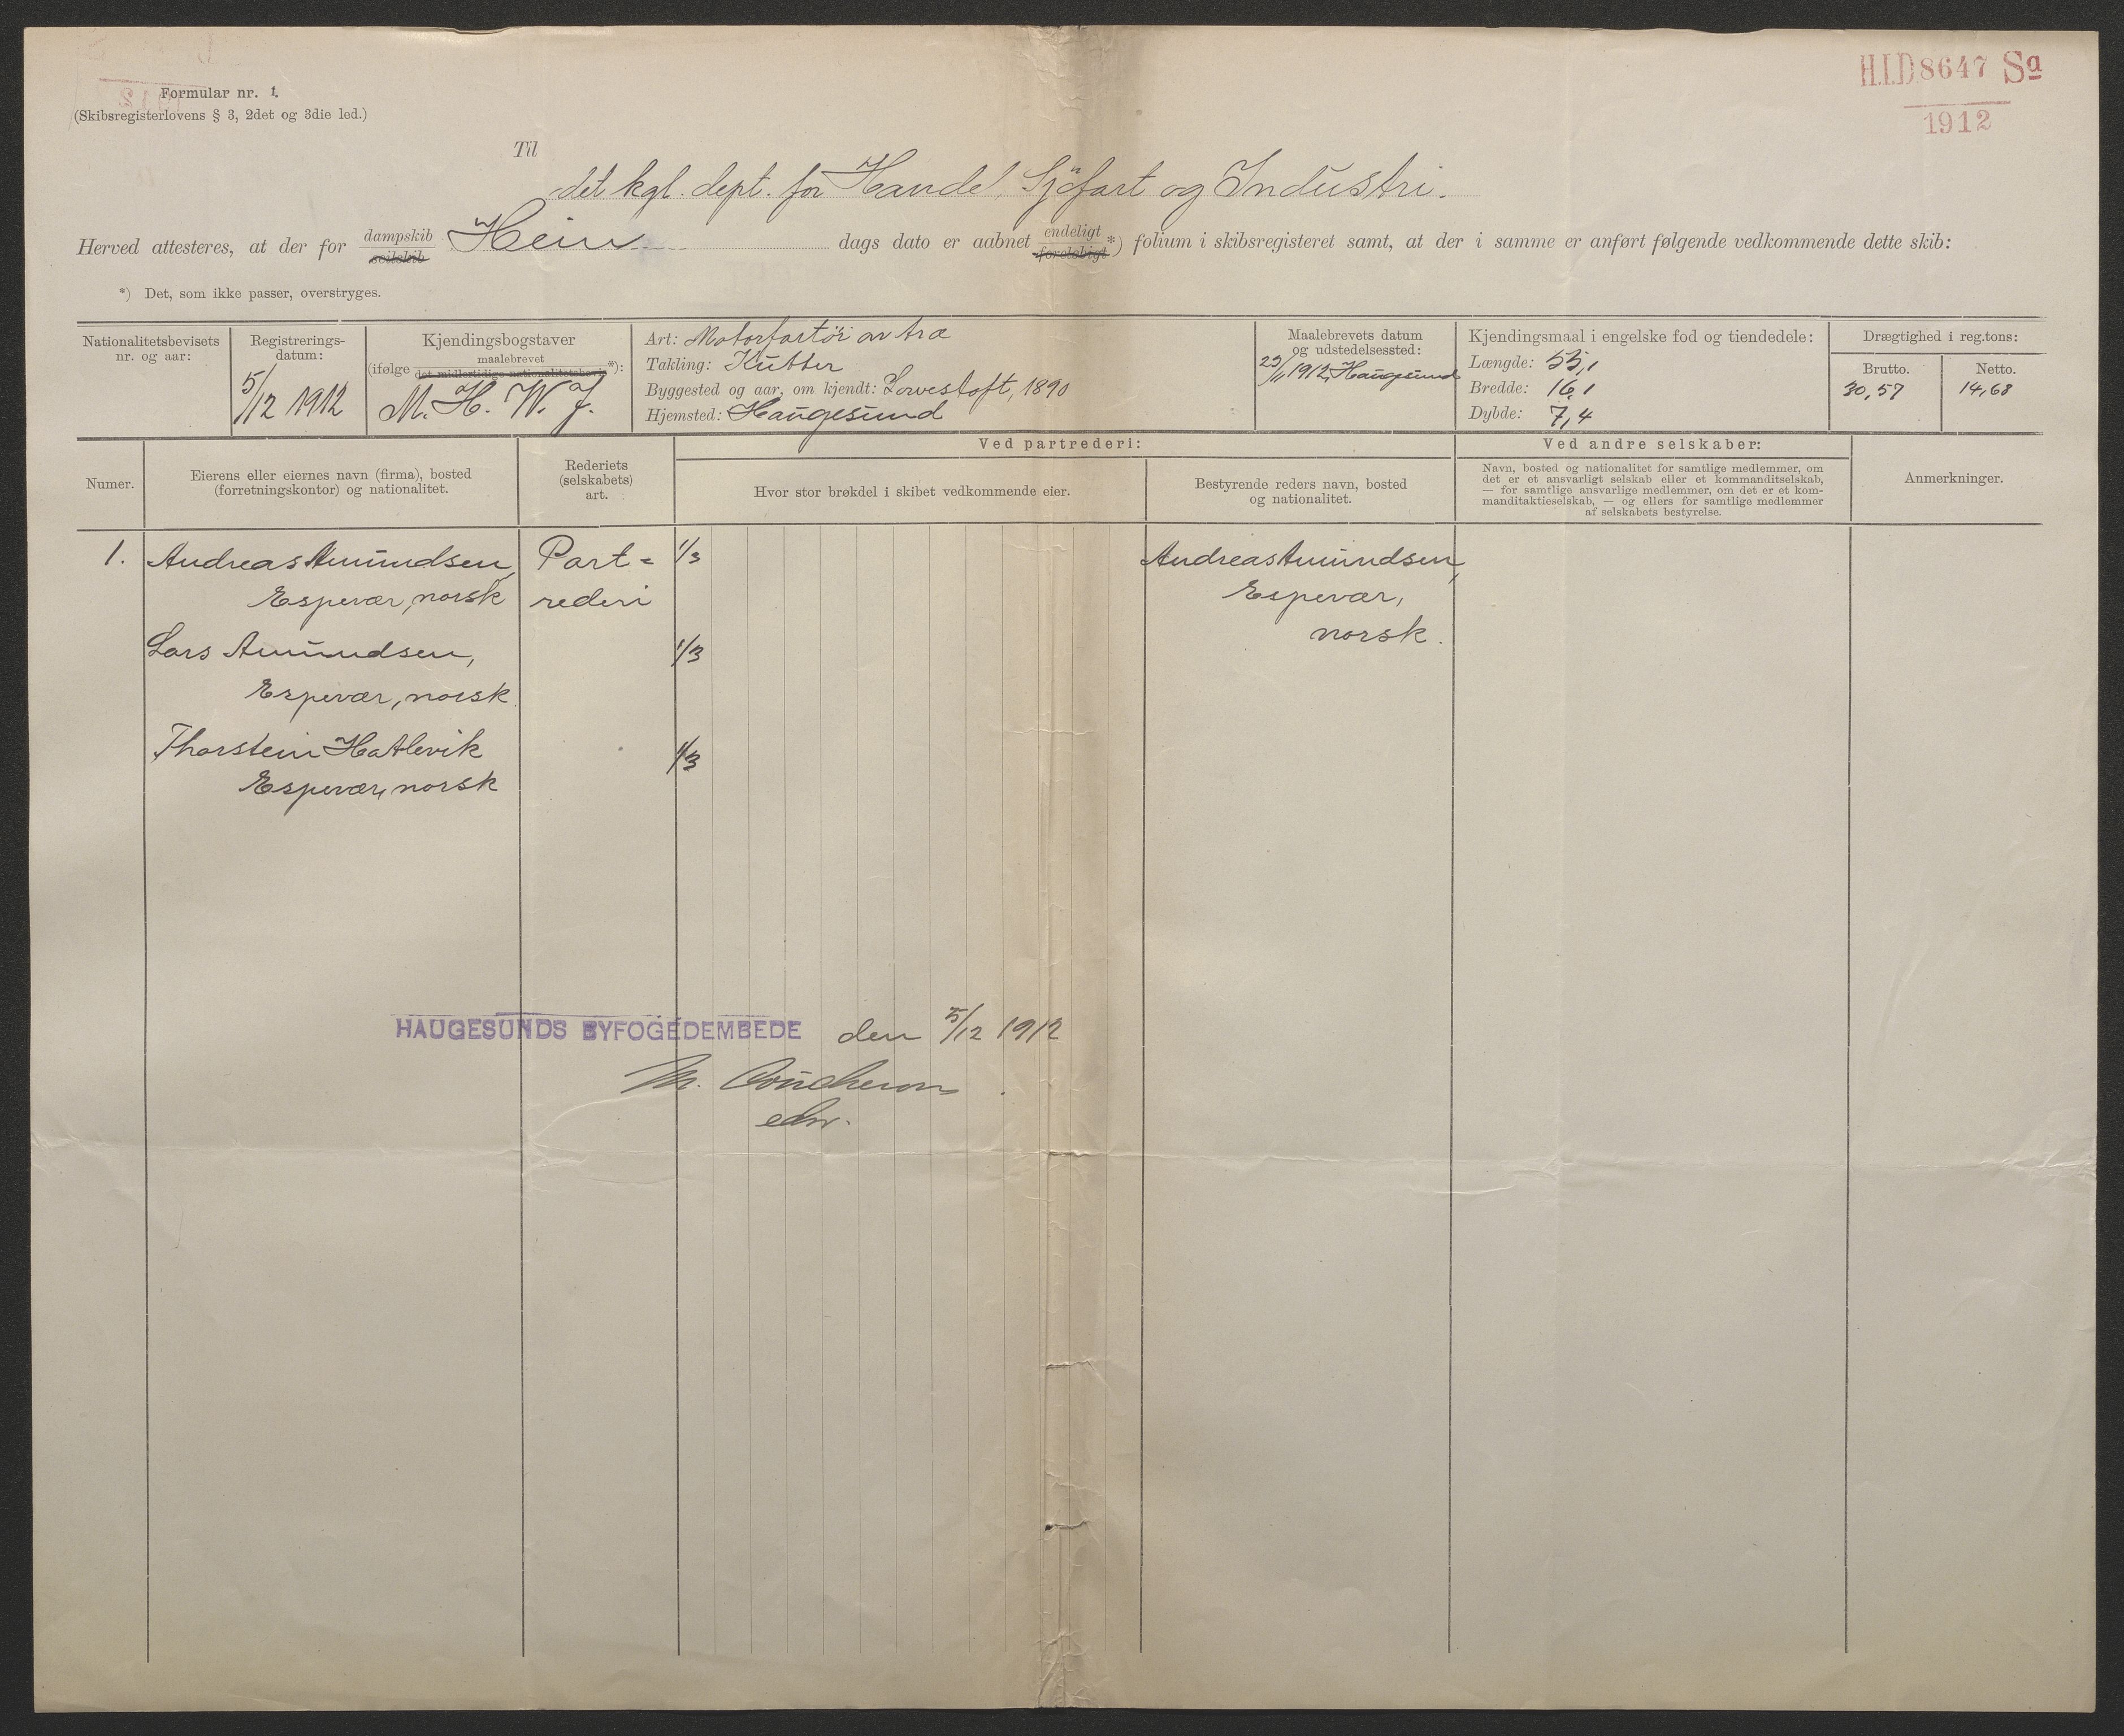 H.I.D 8647 Sa
1912
Formular nr. 1.
(Skibsregisterlovens § 3, 2det og 3die led.)
Til
det kgl. dept. for Handel, Sjöfart og Industri.
Herved attesteres, at der for dampskib seilskib Hein dags dato er aabnet endeligt foreløbigt *) folium i skibsregisteret samt, at der i samme er anført følgende vedkommende dette skib:
*) Det, som ikke passer, overstryges.
Nationalitetsbevisets nr. og aar:
Registreringsdatum:
5/12 1912
Kjendingsbogstaver
(ifølge maalebrevet det midlertidige nationalitetsbevis *):
M. H. W. J.
Art: Motorfartöi av træ
Takling: Kutter
Byggested og aar, om kjendt: Lowestoft, 1890
Hjemsted: Haugesund
Maalebrevets datum
og udstedelsessted:
23/11 1912, Haugesund
Kjendingsmaal i engelske fod og tiendedele:
Længde: 53,1
Bredde: 16,1
Dybde: 7,4
Drægtighed i reg.tons:
Brutto. Netto.
30,57 14,68
Numer.
Eierens eller eiernes navn (firma), bosted
(forretningskontor) og nationalitet.
Rederiets
(selskabets)
art.
Ved partrederi:
Hvor stor brøkdel i skibet vedkommende eier.
Bestyrende reders navn, bosted
og nationalitet.
Ved andre selskaber:
Navn, bosted og nationalitet for samtlige medlemmer, om
det er et ansvarligt selskab eller et kommanditselskab,
— for samtlige ansvarlige medlemmer, om det er et kom-
manditaktieselskab, — og ellers for samtlige medlemmer
af selskabets bestyrelse.
Anmerkninger.
1. Andreas Amundsen, Part= 1/3 Andreas Amundsen,
Espevær, norsk rederi Espevær,
norsk.
Lars Amundsen, 1/3
Espevær, norsk.
Thorstein Hatlevik 1/3
Espevær, norsk
HAUGESUNDS BYFOGEDEMBEDE den 5/12 1912